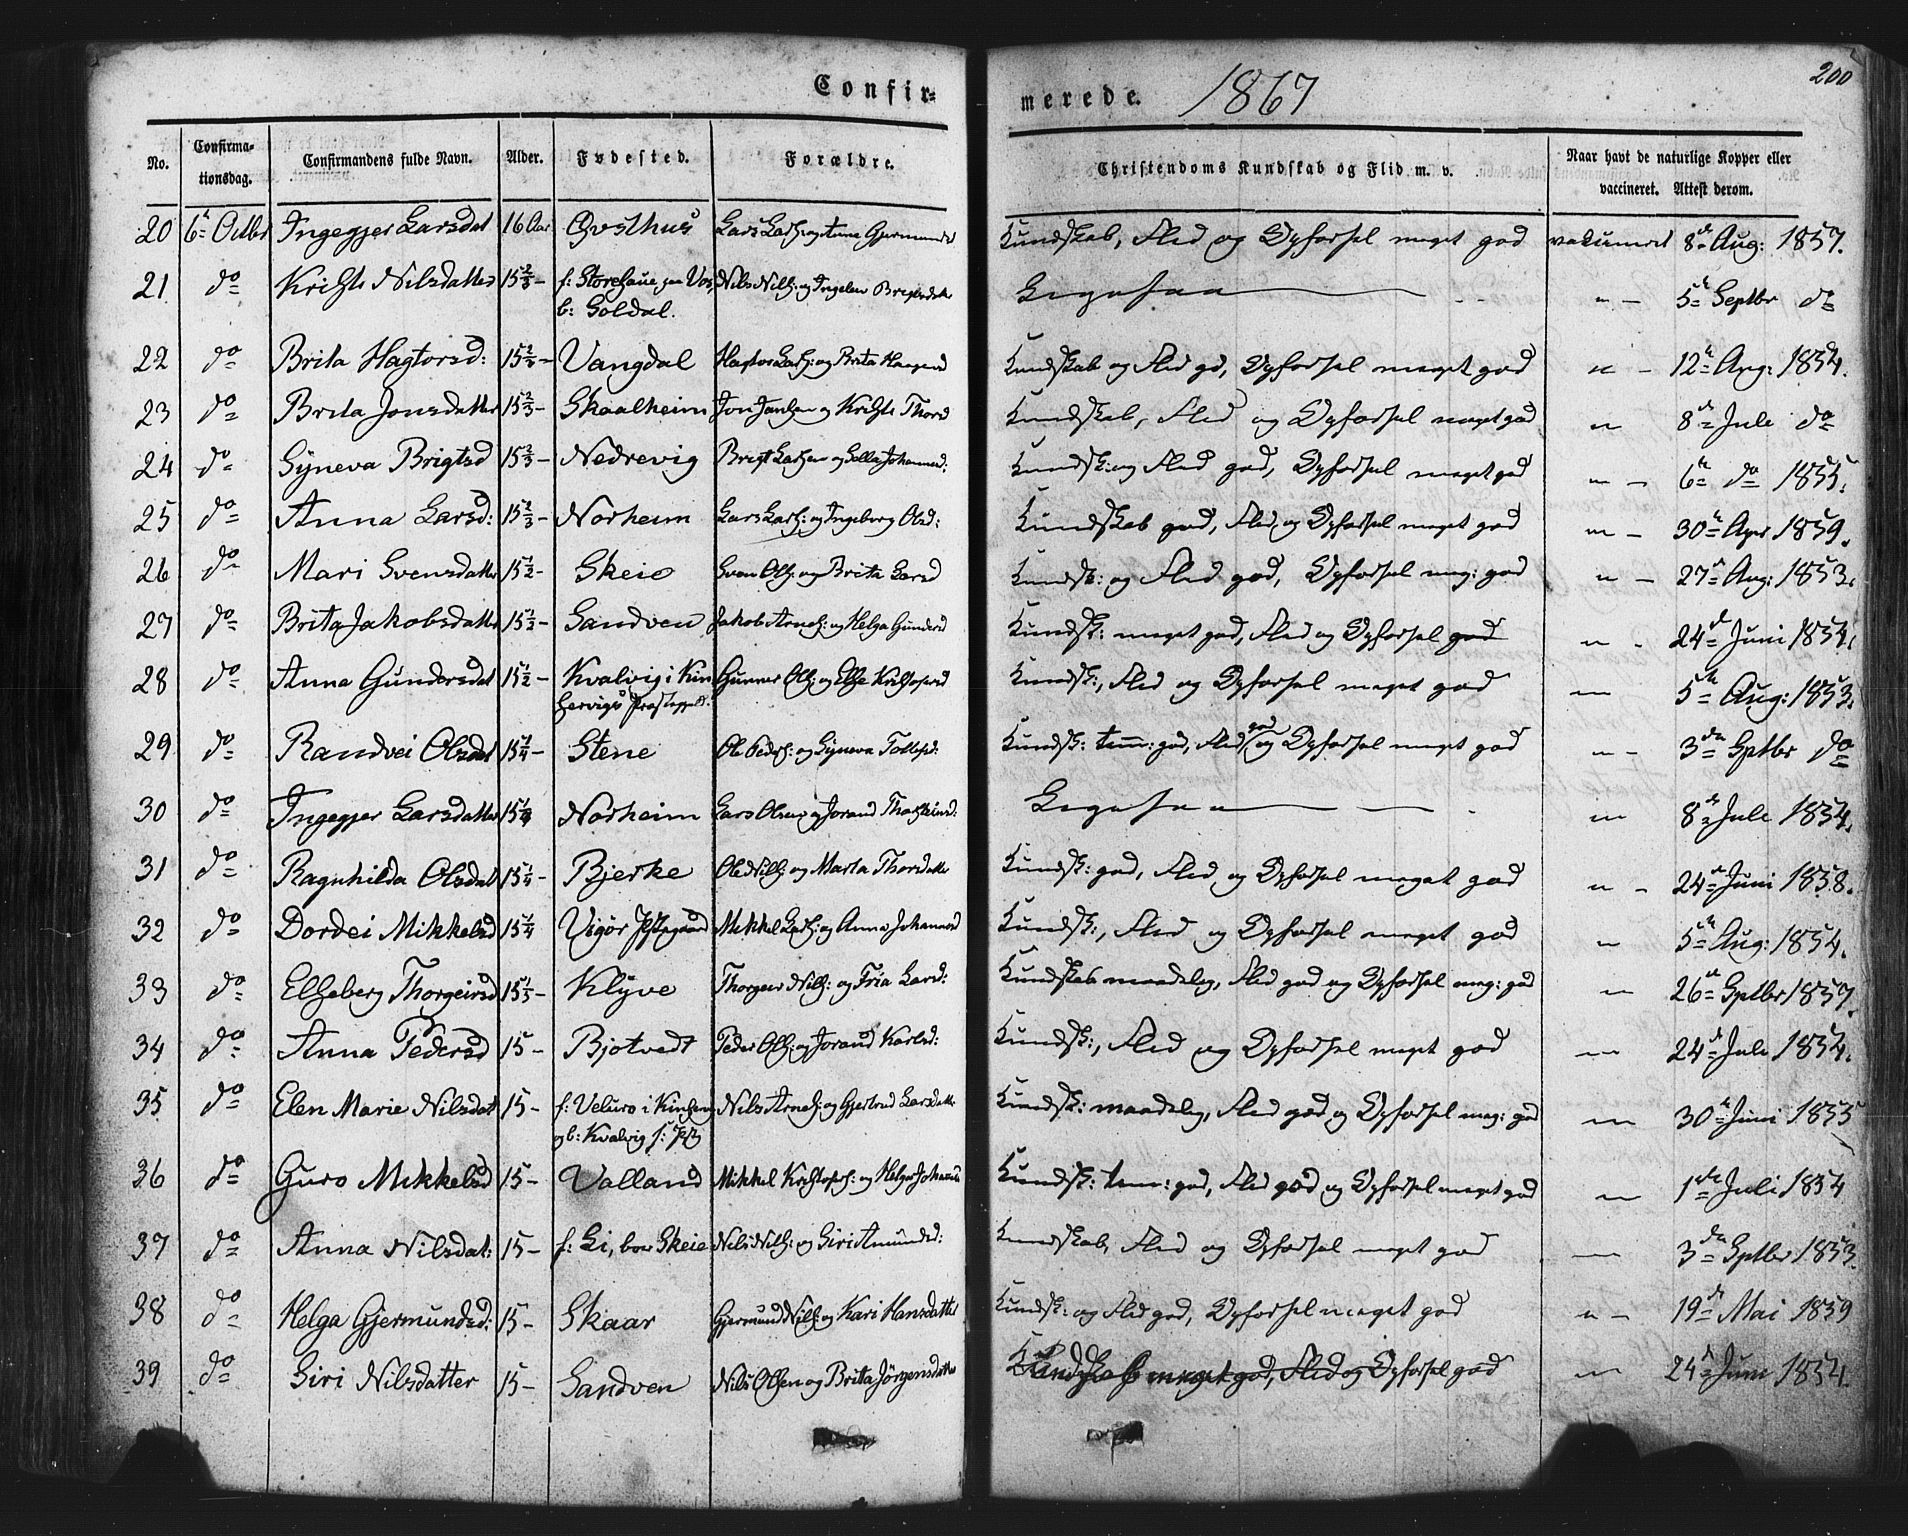 Confir=
merede. 1867
200
No. Confirma=tionsdag. Confirmandens fulde Navn. Alder. Fødested. Forældre. Christendoms Kundskab og Flid m. v. Naar havt de naturlige Kopper eller vaccineret. Attest derom.
20 6te Octbr Ingegjer Larsdat 16 Aar Øvsthus Lars Larss: og Anna Gjermundsd Kundskab, Flid og Opførsel meget god vakcineret 8de Aug: 1857.
21 do Kristi Nilsdatter 15 2/3 – f: Storehaue paa Vos, Nils Nilss: og Ingelev Brynsdatter Ligesaa " – 5te Septbr do
b: Soldal.
22 do Brita Hagtorsd: 15 2/3 – Vangdal Hagtor Larss: og Brita Haagensd Kundskab og Flid gd, Opførsel meget god " – 12te Aug: 1854.
23 do Brita Jonsdatter 15 2/3 – Skaalheim Jon Jonssen og Kristi Thorsd Kundskab, Flid og Opførsel meget god " 8de Juli do
24 do Syneva Brigtsd 15 2/3 – Nedrevig Brigt Larssen og Salla Johannesd: Kundsk: og Flid god, Opførsel meget god " – 6te do 1855.
25 do Anna Larsd: 15 2/3 – Norheim Lars Larss: og Ingeborg Olsd: Kundskab god, Flid og Opførsel meget god " – 30te Apr 1859.
26 do Mari Svensdatter 15 1/2 – Skeie Sven Olss: og Brita Larsd Kundsk: og Flid god, Opførsel meg: god " – 27de Aug: 1853.
27 do Brita Jakobsdatter 15 1/2 – Sandven Jakob Arnes: og Helga Gundersd Kundsk: meget god, Flid og Opførsel god " – 24de Juni 1854.
28 do Anna Gundersdat 15 1/2 – Kvalvig i Kin Gunner Olss: og Else Kristofersd Kundsk:, Flid og Opførsel meget god " 5te Aug: 1853.
servigs Præstegjeld.
29 do Randvei Olsdat 15 1/4 – Stene Ole Peders: og Syneva Tollefsd: Kundsk: tem: god, Flid god og Opførsel meget god " – 3die Sptbr do
30 do Ingegjer Larsdatter 15 1/4 Norheim Lars Olsen og Jorand Thorsteinsd: Ligesaa " 8de Juli 1854.
31 do Ragnhilda Olsdat 15 1/4 – Bjerke Ole Nilss: og Marta Thorsdatter Kundsk: god, Flid og Opførsel meget god " – 24de Juni 1858.
32 do Dordei Mikkelsd 15 1/4 Vigør Mikkel Larss: og Anna Johannesd Kundsk:, Flid og Opførsel meget god " 5te Aug: 1854.
33 do Elseberg Thorgeirsd 15 1/3 – Klyve Thorgeir Nilss: og Fria Larsd: Kundskab maadelig, Flid god og Opførsel meg: god " 26de Sptbr 1857.
34 do Anna Pedersd 15 – Bjotvedt Peder Olss: og Jorand Karlsd: Kundsk:, Flid og Opførsel meget god " 24de Juli 1854.
35 do Elen Marie Nilsdat 15 – f: Veluro i Nils Arnes: og Gjertrud Larsdatter Kundsk: maadelig, Flid god og Opførsel meg: god " 30te Juni 1855
og b: Kvalvig
36 do Guro Mikkelsd 15 – Valland Mikkel Kristofers: og Helga Johannesd Kundsk: tem: god, Flid god og Opførsel meget god " 1ste Juli 1854
37 do Anna Nilsdat: 15 – f: Li, bor Skeie Nils Nilss: og Siri Amundsd: Kundskab, Flid og Opførsel meget god " 3die Sptbr 1853.
38 do Helga Gjermundsd: 15 – Skaar Gjermund Nilss: og Kari Hansdatter Kundsk: og Flid god, Opførsel meget god " – 19de Mai 1859
39 do Siri Nilsdatter 15 – Sandven Nils Olsen og Brita Jørgensdatter Kundskab meget god, Flid og Opførsel god " 24de Juni 1854.